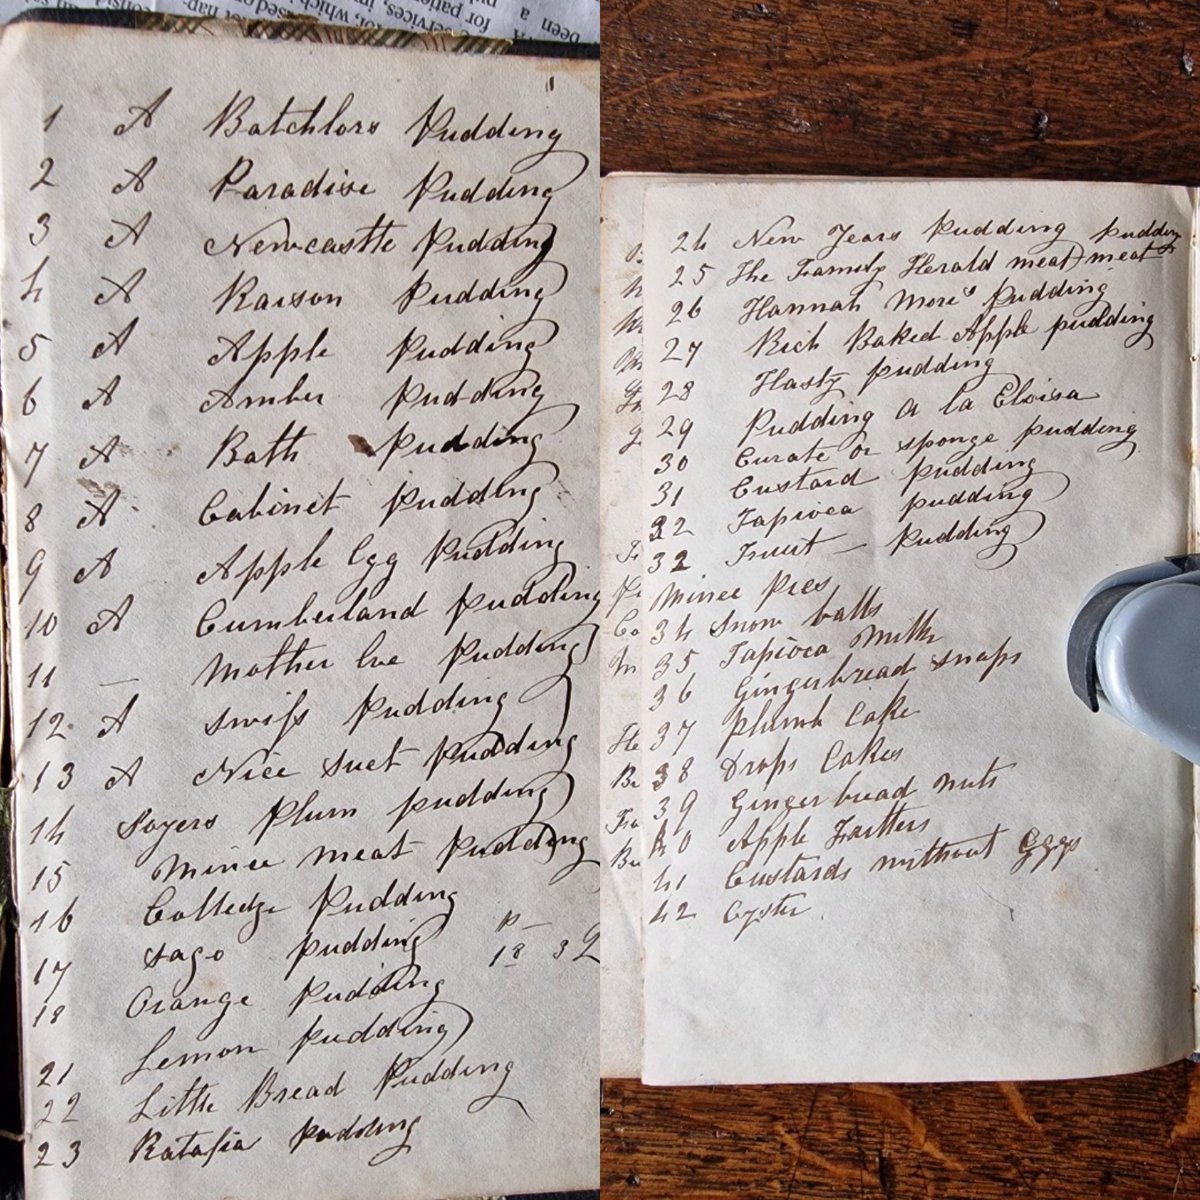 1 A Batchlors Pudding
2 A Paradise Pudding
3 A Newcastle Pudding
4 A Raison Pudding
5 A Apple Pudding
6 A Amber Pudding
7 A Bath Pudding
8 A Cabinet Pudding
9 A Apple Egg Pudding
10 A Cumberland Pudding
11 — Mother Eve Pudding
12 A Swiſs Pudding
13 A Nice Suet Pudding
14 Soyers Plum pudding
15 Mince meat Pudding
16 Colledge Pudding
17 Sago Pudding
18 Orange Pudding
Lemon pudding
21 Little Bread Pudding
22 Ratafia pudding
23
P —
18 32
24 New Years Pudding pudding
25 The Family Herald meat) meat
26 Hannah More's Pudding
27 Rich Baked Apple pudding
28 Hasty pudding
29 Pudding a la Eloisa
30 Curate or sponge pudding
31 Custard pudding
32 Tapioca pudding
32 Fruit — pudding
Mince Pies
34 Snow balls
35 Tapioca Milk
36 Gingerbread Snaps
37 Plumb Cake
38 Drops Cakes
39 Ginger bread nuts
40 Apple Fritters
41 Custards without Eggs
42 Oyster